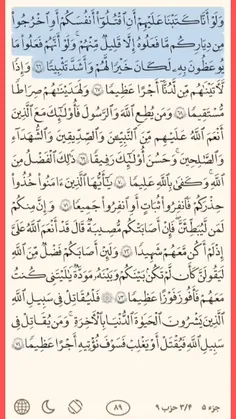 وَلَوْ أَنَّا كَتَبْنَا عَلَيْهِمْ أَنِ ٱقْتُلُوٓا۟ أَنفُسَكُمْ أَوِ ٱخْرُجُوا۟
مِن دِيَـٰرِكُم مَّا فَعَلُوهُ إِلَّا قَلِيلٌ مِّنْهُمْ ۖ وَلَوْ أَنَّهُمْ فَعَلُوا۟ مَا
يُوعَظُونَ بِهِۦ لَكَانَ خَيْرًا لَّهُمْ وَأَشَدَّ تَثْبِيتًا ﴿٦٦﴾ وَإِذًا
لَّـَٔاتَيْنَـٰهُم مِّن لَّدُنَّآ أَجْرًا عَظِيمًا ﴿٦٧﴾ وَلَهَدَيْنَـٰهُمْ صِرَٰطًا
مُّسْتَقِيمًا ﴿٦٨﴾ وَمَن يُطِعِ ٱللَّهَ وَٱلرَّسُولَ فَأُو۟لَـٰٓئِكَ مَعَ ٱلَّذِينَ
أَنْعَمَ ٱللَّهُ عَلَيْهِم مِّنَ ٱلنَّبِيِّـۧنَ وَٱلصِّدِّيقِينَ وَٱلشُّهَدَآءِ
وَٱلصَّـٰلِحِينَ ۚ وَحَسُنَ أُو۟لَـٰٓئِكَ رَفِيقًا ﴿٦٩﴾ ذَٰلِكَ ٱلْفَضْلُ مِنَ
ٱللَّهِ ۚ وَكَفَىٰ بِٱللَّهِ عَلِيمًا ﴿٧٠﴾ يَـٰٓأَيُّهَا ٱلَّذِينَ ءَامَنُوا۟ خُذُوا۟
حِذْرَكُمْ فَٱنفِرُوا۟ ثُبَاتٍ أَوِ ٱنفِرُوا۟ جَمِيعًا ﴿٧١﴾ وَإِنَّ مِنكُمْ
لَمَن لَّيُبَطِّئَنَّ فَإِنْ أَصَـٰبَتْكُم مُّصِيبَةٌ قَالَ قَدْ أَنْعَمَ ٱللَّهُ عَلَىَّ
إِذْ لَمْ أَكُن مَّعَهُمْ شَهِيدًا ﴿٧٢﴾ وَلَئِنْ أَصَـٰبَكُمْ فَضْلٌ مِّنَ ٱللَّهِ
لَيَقُولَنَّ كَأَن لَّمْ تَكُنۢ بَيْنَكُمْ وَبَيْنَهُۥ مَوَدَّةٌ يَـٰلَيْتَنِى كُنتُ
مَعَهُمْ فَأَفُوزَ فَوْزًا عَظِيمًا ﴿٧٣﴾ ۞ فَلْيُقَـٰتِلْ فِى سَبِيلِ ٱللَّهِ
ٱلَّذِينَ يَشْرُونَ ٱلْحَيَوٰةَ ٱلدُّنْيَا بِٱلْـَٔاخِرَةِ ۚ وَمَن يُقَـٰتِلْ فِى
سَبِيلِ ٱللَّهِ فَيُقْتَلْ أَوْ يَغْلِبْ فَسَوْفَ نُؤْتِيهِ أَجْرًا عَظِيمًا ﴿٧٤﴾
جزء ٥ ٣/٤ حزب ٩ ٨٩